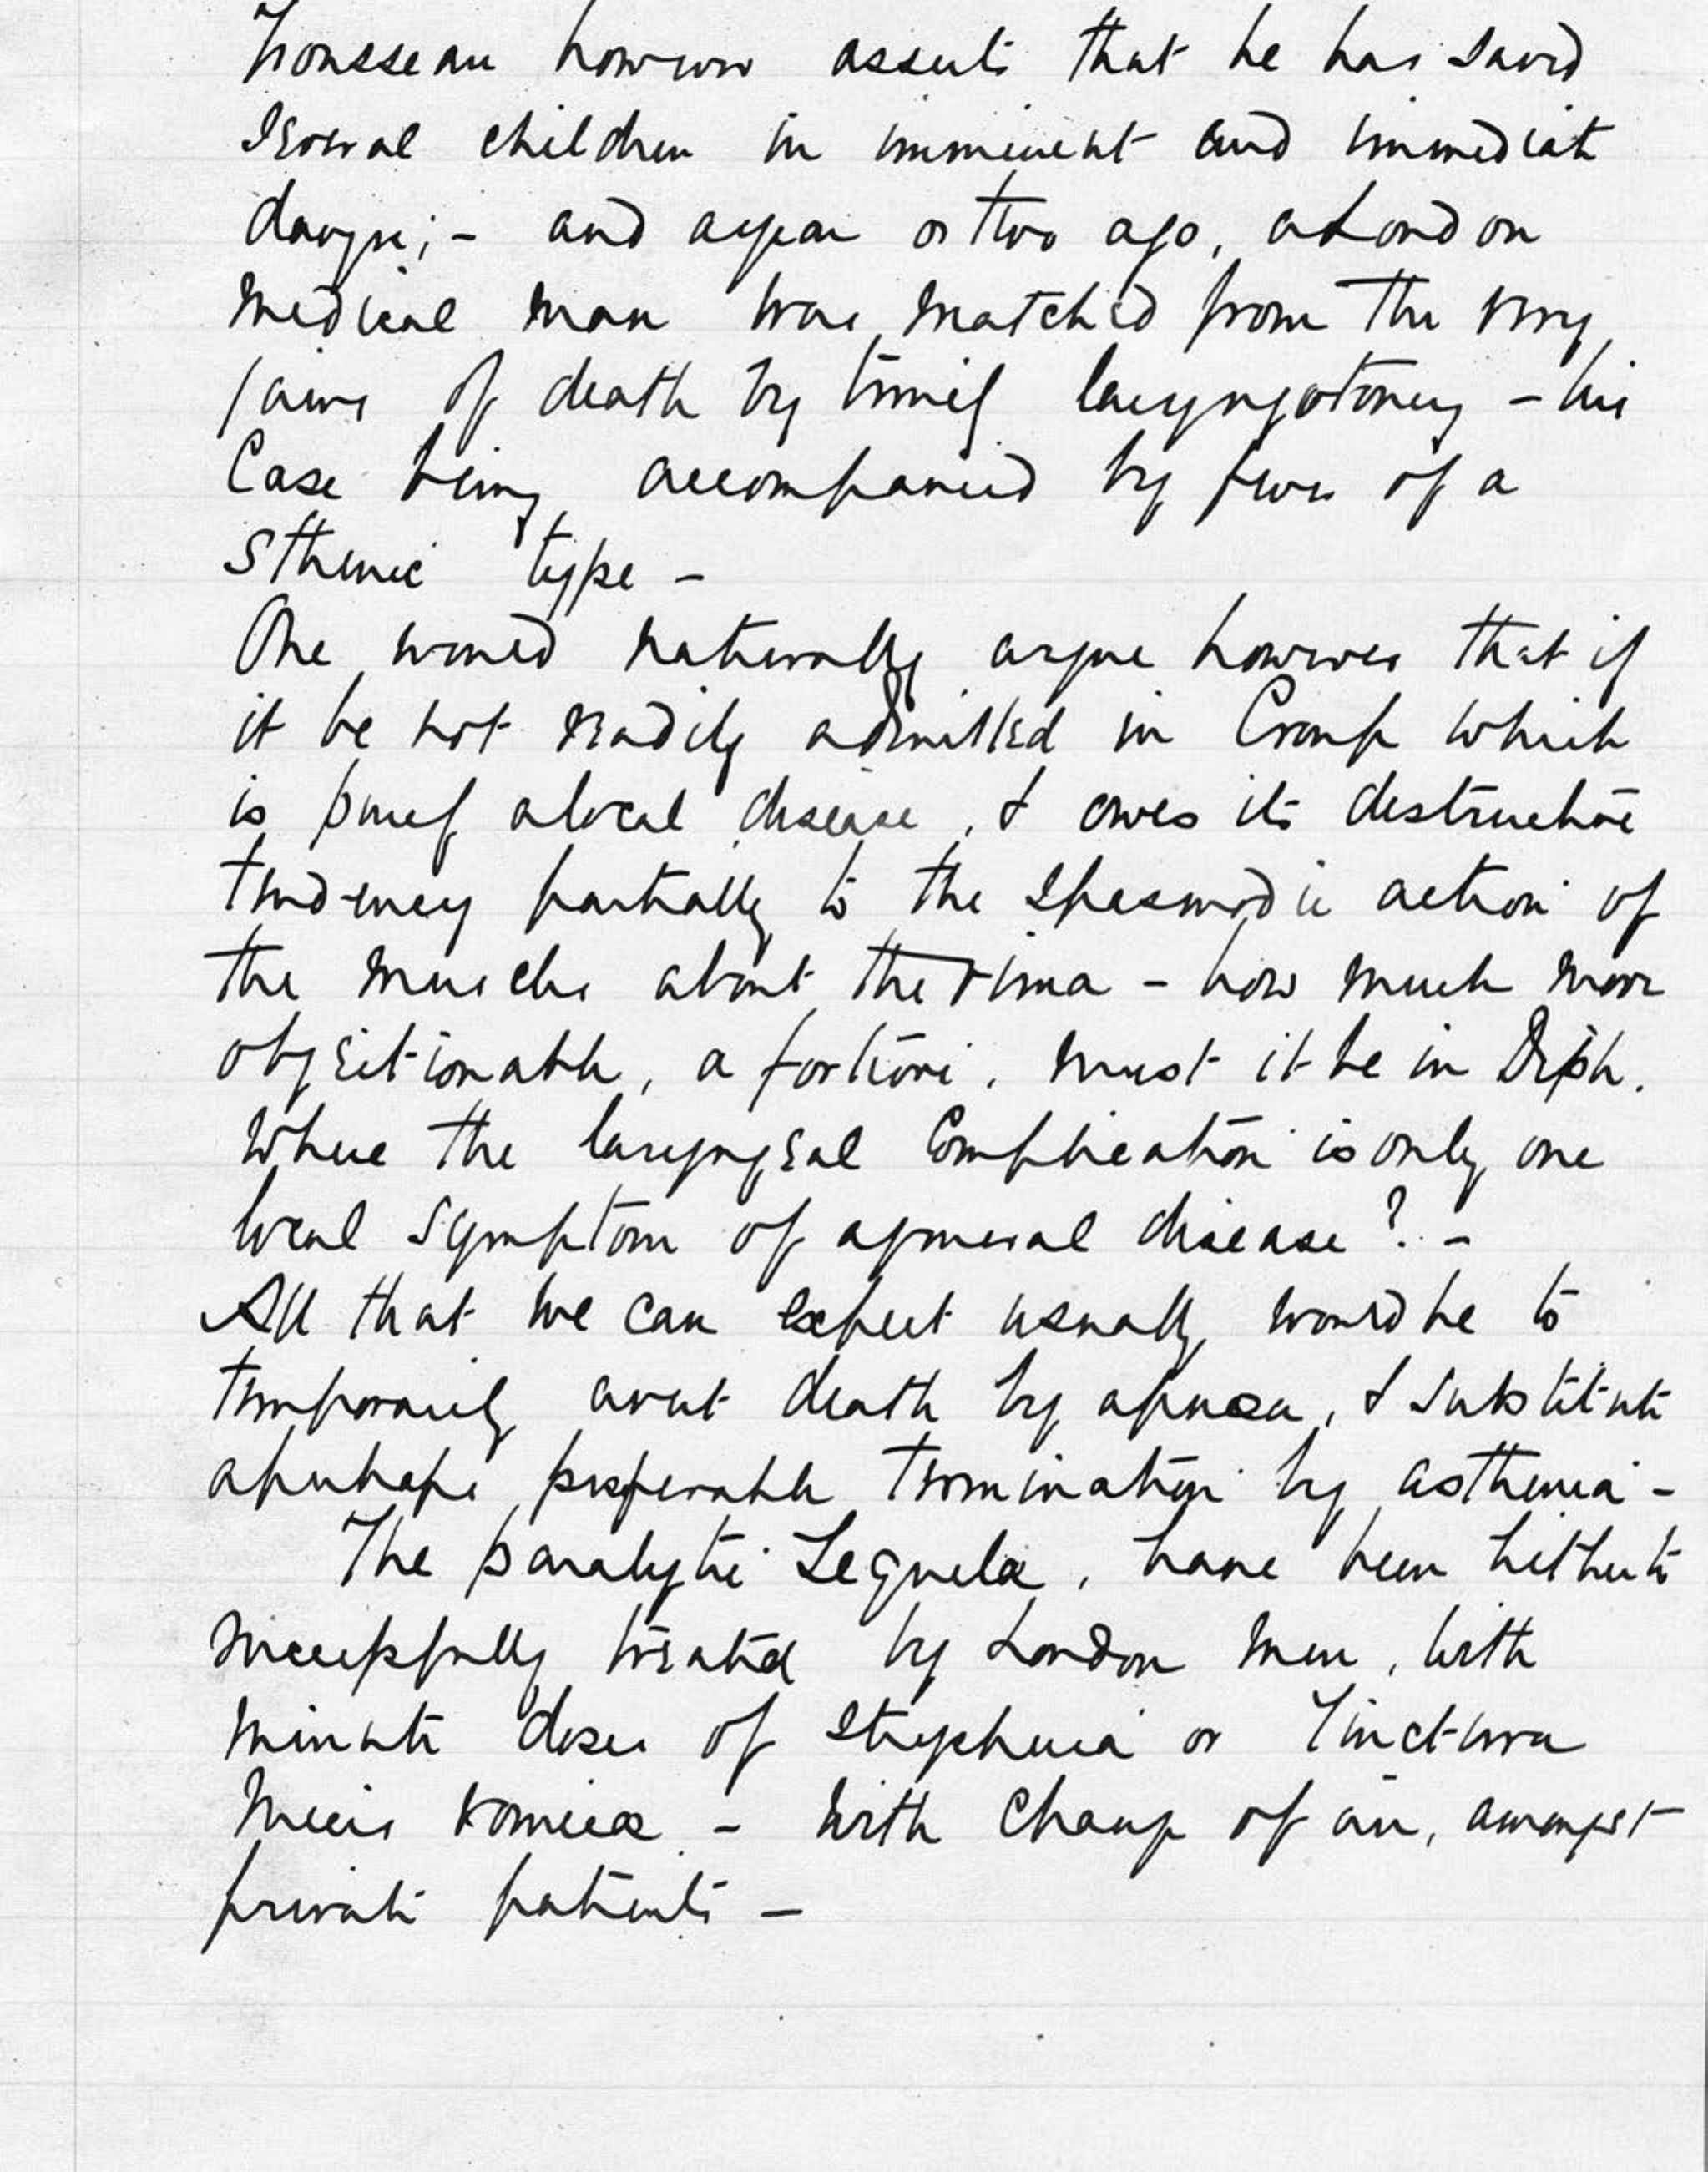 Trousseau however asserts that he has saved
several children in imminent and immediate
danger; - and a year or two ago, a London
medical man was snatched from the very
jaws of death by timely laryngotomy - his
Case being accompanied by fever of a
Sthenic type -
One would naturally argue however that if
it be not readily admitted in Croup which
is purely a local disease, & owes its destructive
tendency partially to the spasmodic action of
the muscles about the rima - how much more
objectionable, a fortiori, must it be in Diph.
where the laryngeal Complication is only one
local symptom of a general disease? -
All that we can expect usually would be to
temporarily avert death by apnœa, & substitute
a perhaps preferable termination by asthenia -
The paralytic Sequelæ, have been hitherto
successfully treated by London men, with
minute doses of strychnia or Tinctura
Nucis Vomicæ - with change of air, amongst
private patients -